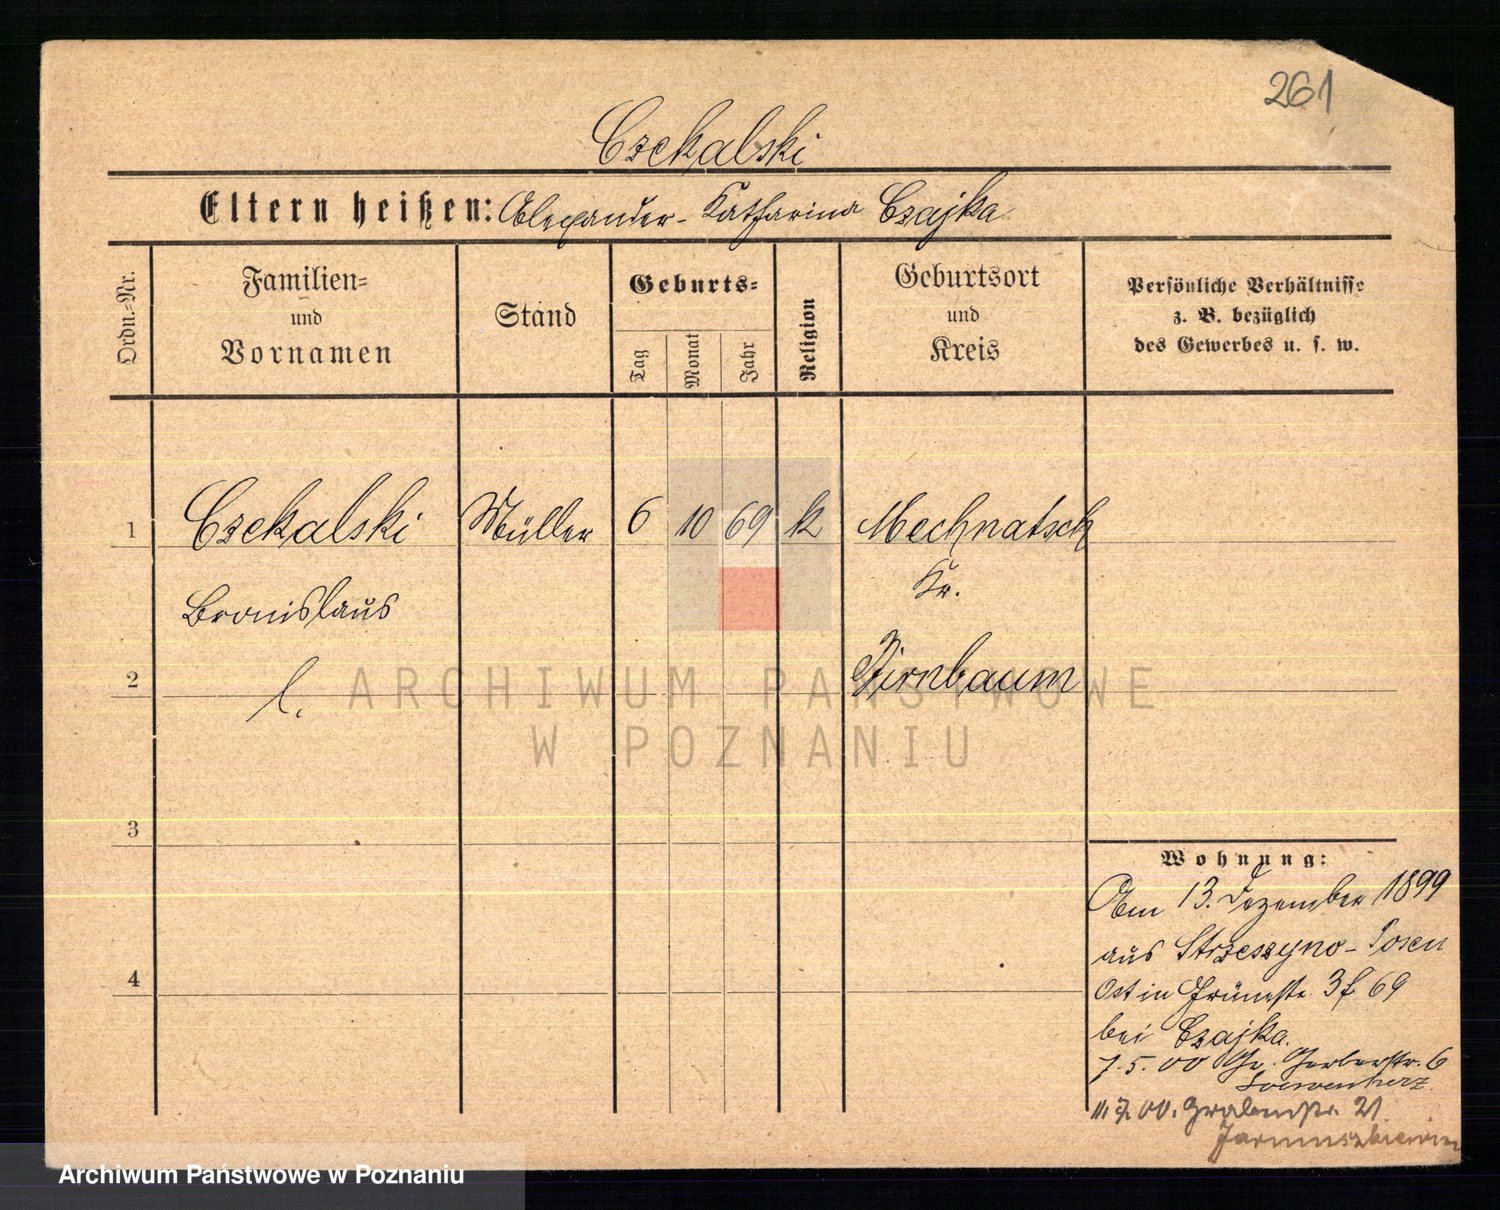 261
Czekalski
Eltern heißen: Alexander - Katharina Czajka
Ordn.-Nr.
Familien-
und
Vornamen
Stand
Geburts-
Tag
Monat
Jahr
Religion
Geburtsort
und
Kreis
Persönliche Verhältnisse
z. B. bezüglich
des Gewerbes u. s. w.
1 Czekalski Müller 6 10 69 k Mechnatsch
Kr.
Bronislaus
2 l. Birnbaum
ARCHIWUM PAŃSTWOWE
W POZNANIU
3
Wohnung:
Am 13. Dezember 1899
aus Strzeszyno - Posen
Ost in 69
4
bei Czajka.
7.5.00 Gr. Gerberstr. 6
Loewenherz
00. Grabenstr. 21
Archiwum Państwowe w Poznaniu